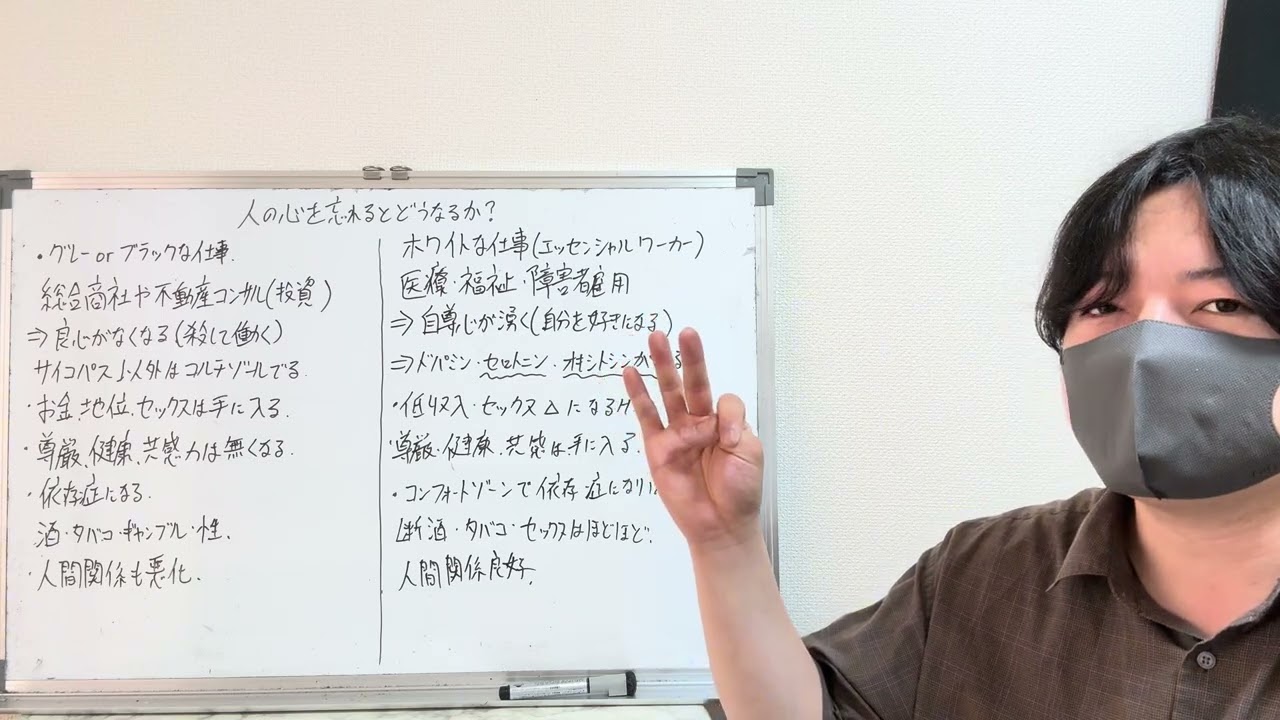 人の心を忘れるとどうなるか?
・グレーorブラックな仕事.
総合商社や不動産コンサル(投資)
⇒良心がなくなる(殺して働く)
サイコパス以外はコルチゾールでる.
・お金、地位、セックスは手に入る.
・尊厳、健康、共感力は無くなる.
・依存症になる.
酒・タバコ・ギャンブル・性.
・人間関係も悪化.
ホワイトな仕事(エッセンシャルワーカー)
医療・福祉・障害者雇用
⇒自尊心が湧く(自分を好きになる)
⇒ドパミン・セロトニン・オキシトシンが る
・低収入・セックス△になるが
・尊厳・健康、共感は手に入る.
・コンフォートゾーンで依存症になり
断酒・タバコ・セックスはほどほど.
人間関係良好.